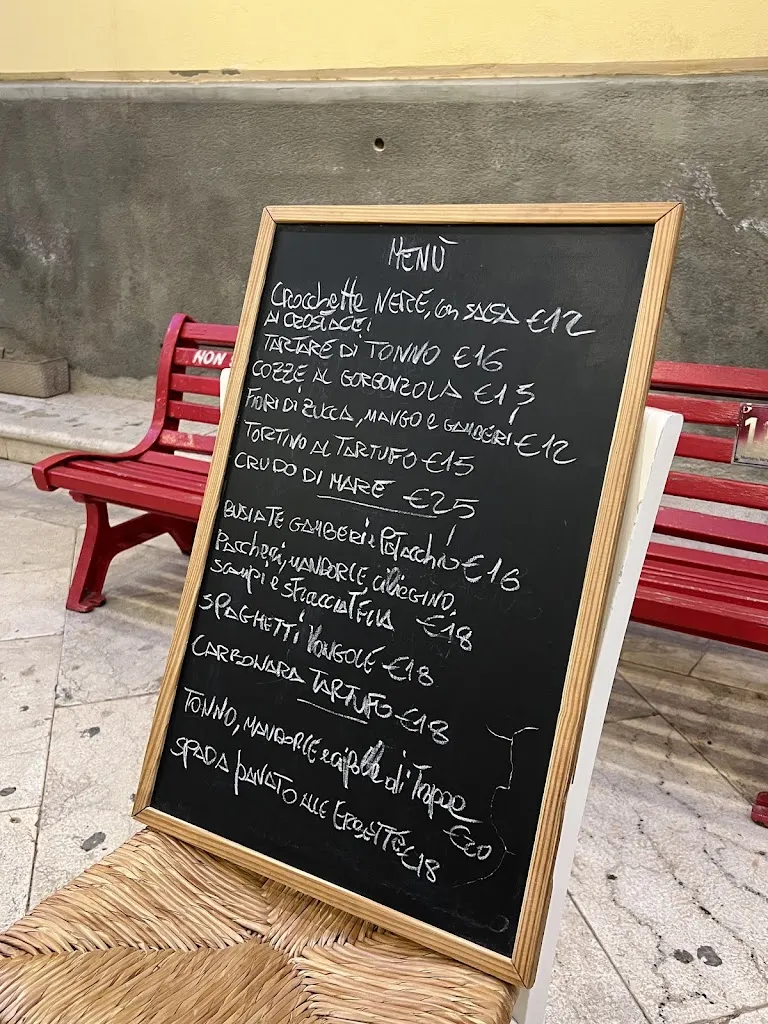 MENÙ
CROCCHETTE NERE, CON SALSA €12
AI CROSTACEI
TARTARE DI TONNO €16
COZZE AL GORGONZOLA €15
FIORI DI ZUCCA, MANGO e GAMBERI €12
TORTINO AL TARTUFO €15
CRUDO DI MARE €25
BUSIATE GAMBERI e PISTACCHIO €16
PACCHERI, MANDORLE CILIEGINO,
SCAMPI e STRACCIATELLA €18
SPAGHETTI VONGOLE €18
CARBONARA TARTUFO €18
TONNO, MANDORLE e cipolla di Trapani
SPADA PANATO ALLE ERBETTE €18
NON